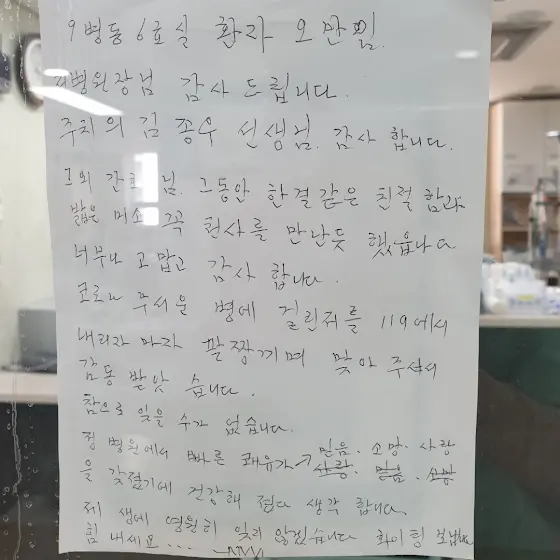 9병동 6호실 환자 오만필.
병원장님 감사 드립니다.
주치의 김종우 선생님. 감사 합니다.
그외 간호 님. 그동안 한결같은 친절 함과
밝은 미소 꼭 천사를 만난듯 했읍니다
너무나 고맙고 감사 합니다.
코로나 무서운 병에 걸린저를 119에서
내리자 마자 팔짱끼며 맞아 주셔서
감동 받앗 습니다.
참으로 잊을 수가 없습니다.
정 병원에서 빠른 쾌유가 믿음. 소망. 사랑
을 갖졌기에 건강해 졌다 생각 합니다.
제 생에 영원히 잊지 않겠습니다 화이팅 보냅니다
힘 내세요...